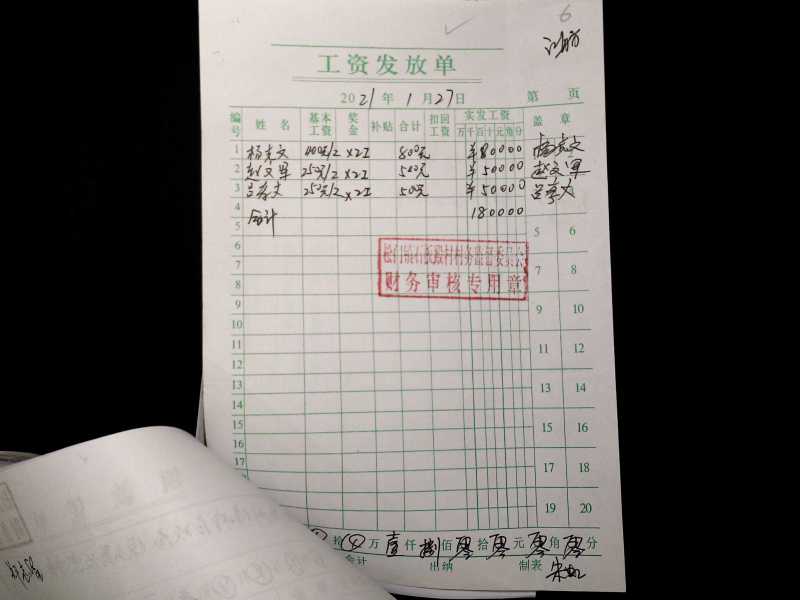 6
工资发放单
2021年1月27日 第 页
编号 姓名 基本工资 奖金 补贴 合计 扣回工资 实发工资 万千百十元角分 盖章
1 杨克文 400元/2 ×2工 800元 ¥80000
2 赵文军 250元/2 ×2工 500元 ¥50000 赵文军
3 吕孝文 250元/2 ×2工 500元 ¥50000 吕孝文
4 合计 180000
5 5 6
6
松门镇石板殿村村务监督委员会
财务审核专用章
7 7 8
8
9 9 10
10
11 11 12
12
13 13 14
14
15 15 16
16
17 17 18
19 20
拾 万 壹仟捌佰零拾零元零角零分
会计 出纳 制表